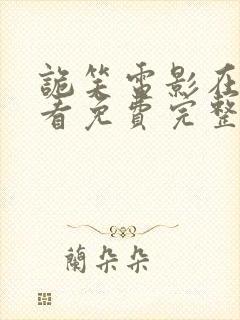 詭笑電影在
看免費完整
蘭朵朵